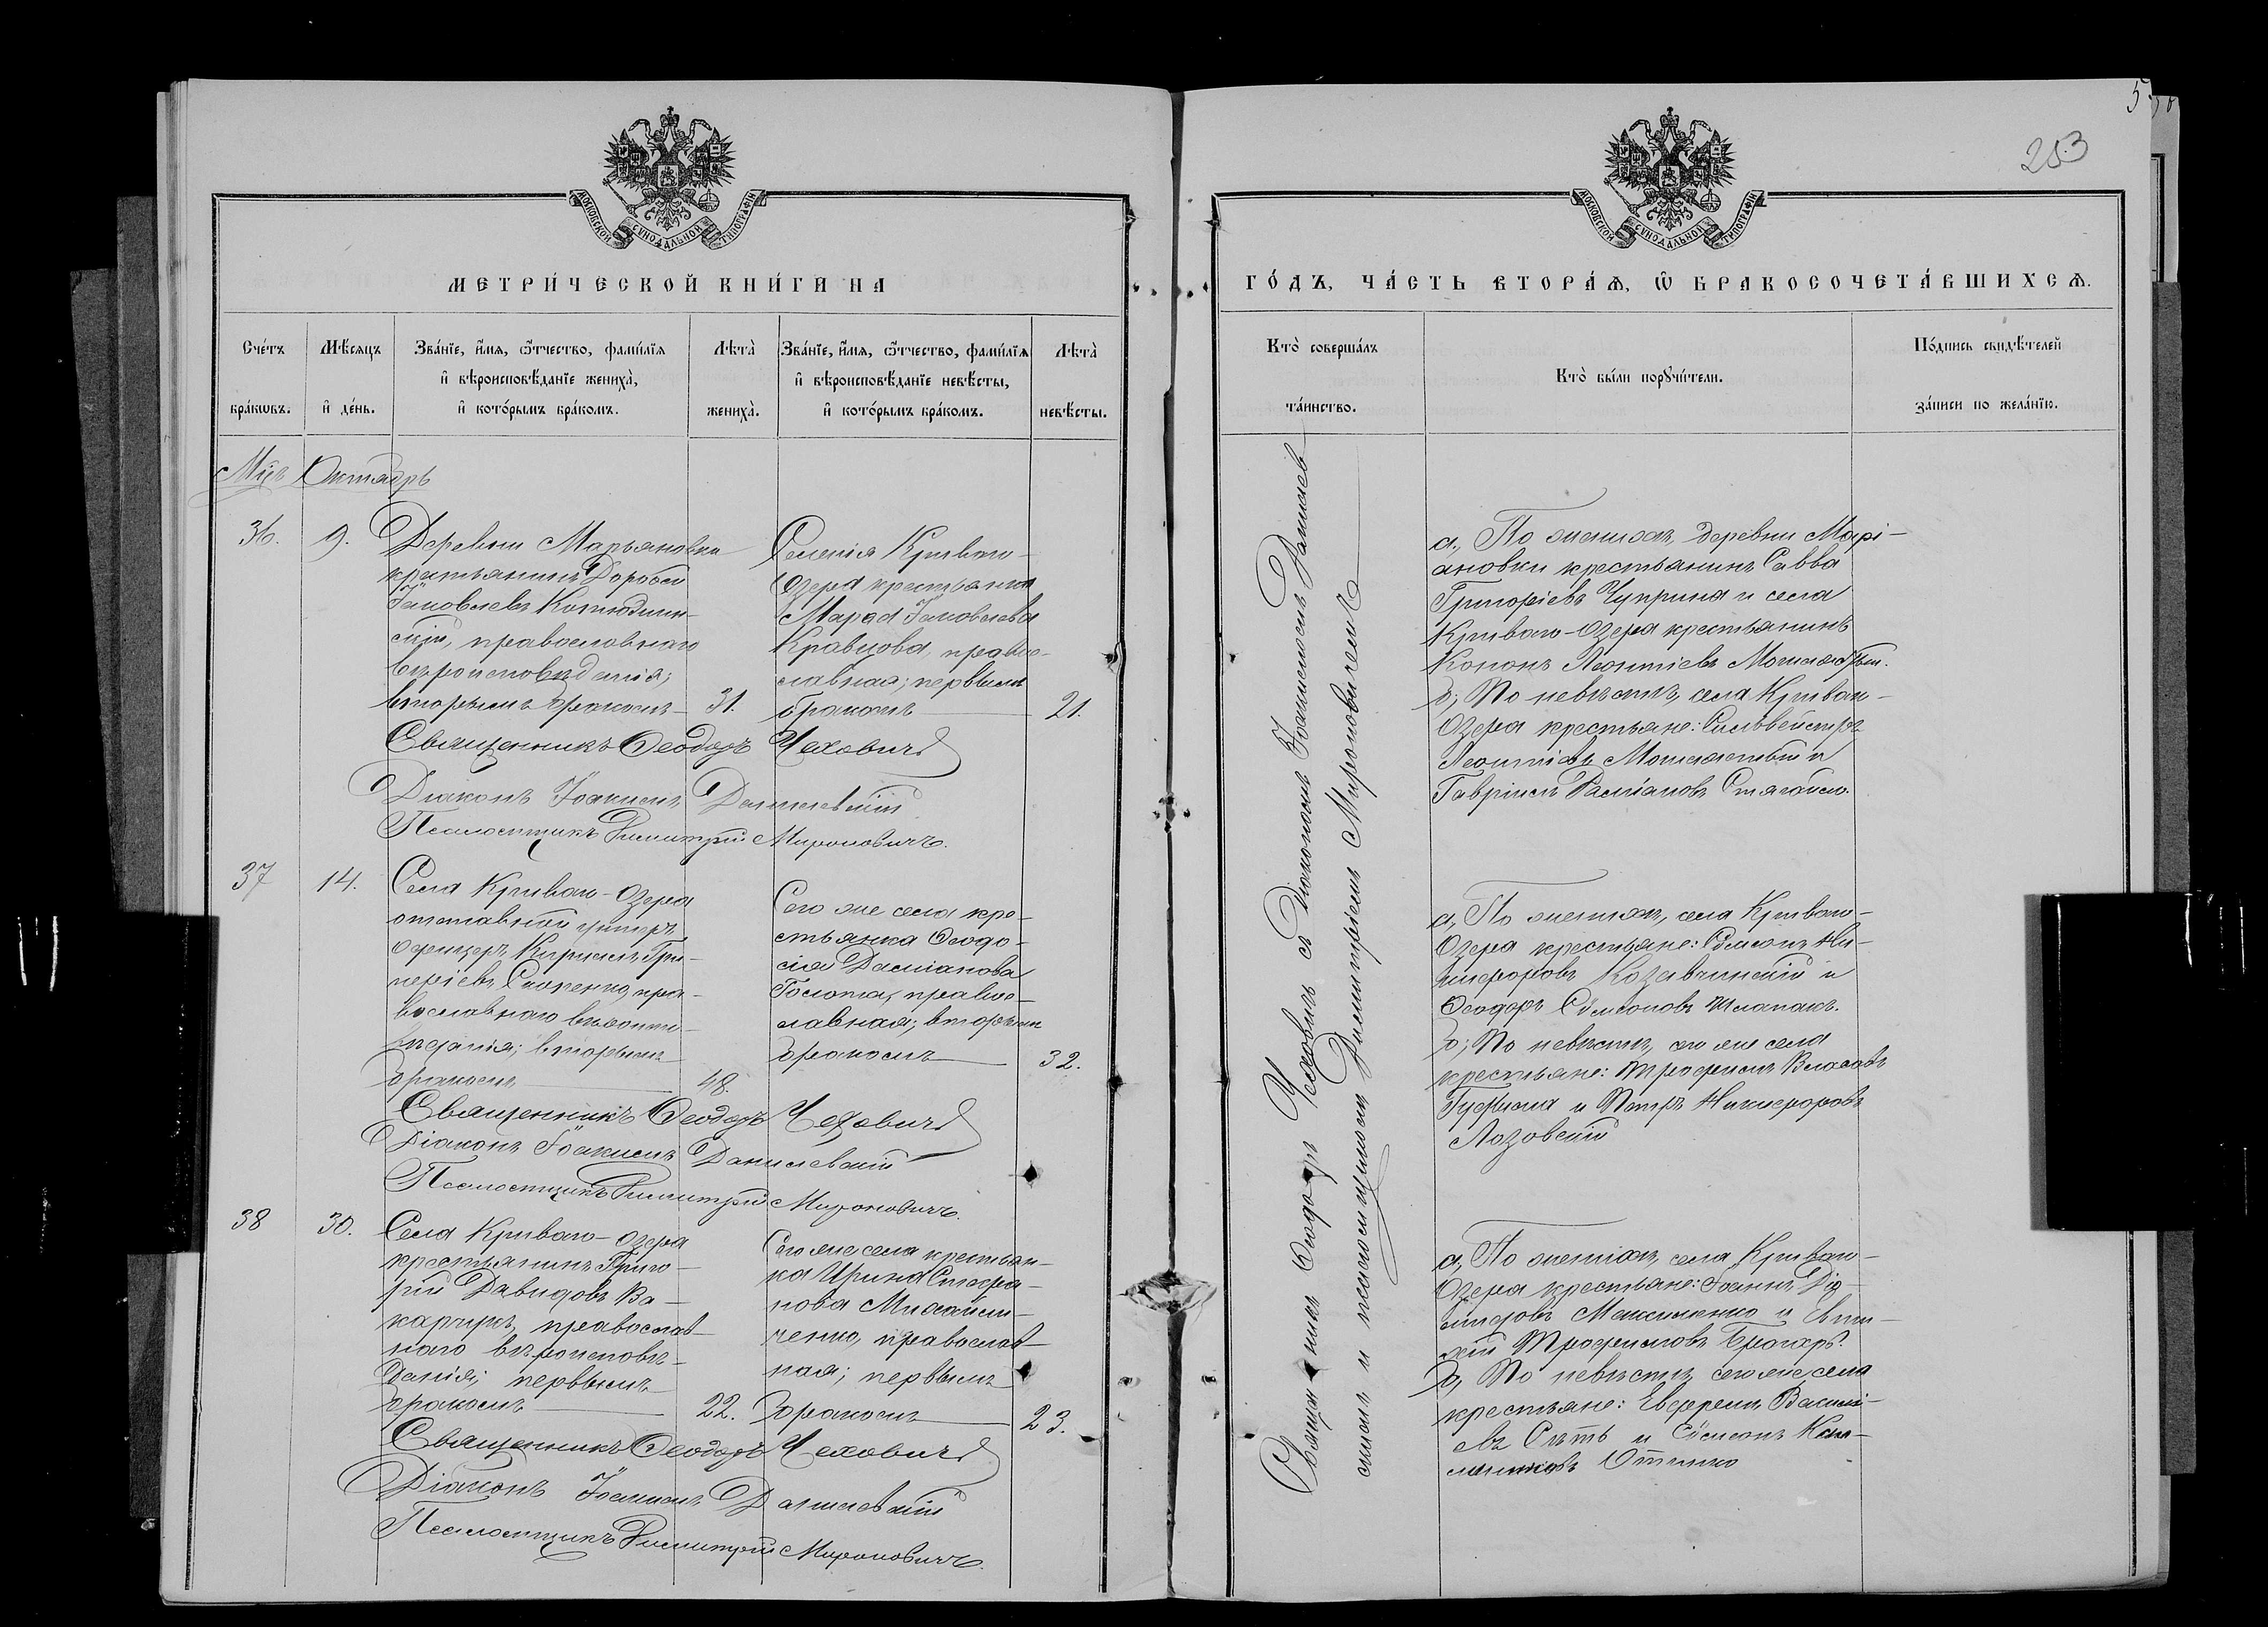 5
253
МОСКОВСКОЙ СѴНОДАЛЬНОЙ ТИПОГРАФІИ
МЕТРИ́ЧЕСКОЙ КНИ́ГИ НА
Сче́тъ бра́кѡвъ.
Мѣ́сяцъ и҆ де́нь.
Зва́нїе, и҆́мя, ѻ҆́тчество, фами́лїя
и҆ вѣроисповѣ́данїе жениха̀,
и҆ кото́рымъ бра́комъ.
Лѣта̀ жениха̀.
Зва́нїе, и҆́мя, ѻ҆́тчество, фами́лїя
и҆ вѣроисповѣ́данїе невѣ́сты,
и҆ кото́рымъ бра́комъ.
Лѣта̀ невѣ́сты.
Мцъ Октябрь
36.
9.
Деревни Марьяновки
крестьянинъ Дороѳей
Іаковлевъ
православнаго
вѣроисповѣданія;
вторымъ бракомъ
31.
Селенія Криваго-
Озера крестьянка
Марѳа Іаковлева
Кравцова, право-
славная; первымъ
бракомъ
21.
Священникъ Ѳеодоръ Чеховичъ
Діаконъ Іоакимъ Данилевскій
Псаломщикъ Димитрій Мироновичъ.
37
14.
Села Криваго-Озера
отставной унтеръ
офицеръ Кириллъ
пра-
вославнаго вѣроиспо-
вѣданія; вторымъ
бракомъ
48.
Сего же села кре-
стьянка Ѳеодо-
сія Даміанова
Голота, право-
славная; вторымъ
бракомъ
32.
Священникъ Ѳеодоръ Чеховичъ
Діаконъ Іоакимъ Данилевскій
Псаломщикъ Димитрій Мироновичъ.
38
30.
Села Криваго-Озера
крестьянинъ Григо-
рій Давидовъ Ва-
карчукъ, православ-
наго вѣроисповѣ-
данія; первымъ
бракомъ
22.
Сего же села крестьян-
ка Ирина Стефа-
нова Михайли-
ченко, православ-
ная; первымъ
бракомъ
23.
Священникъ Ѳеодоръ Чеховичъ
Діаконъ Іоакимъ Данилевскій
Псаломщикъ Димитрій Мироновичъ.
МОСКОВСКОЙ СѴНОДАЛЬНОЙ ТИПОГРАФІИ
ГО́ДЪ, ЧА́СТЬ ВТОРА́Ѧ, Ѿ БРАКОСОЧЕТА́ВШИХСѦ.
Кто̀ соверша́лъ та́инство.
Кто̀ бы́ли порꙋчи́тели.
По́дпись свидѣ́телей за́писи по жела́нїю.
Священникъ Ѳеодоръ Чеховичъ съ Діакономъ Іоакимомъ Данилев
скимъ и псаломщикомъ Димитріемъ Мироновичемъ
а, По женихѣ, деревни Марі-
ановки крестьянинъ Савва
Григоріевъ Чуприна и села
Криваго-Озера крестьянинъ
Кононъ Леонтіевъ
б, По невѣстѣ, села Криваго-
Озера крестьяне: Сильвестръ
Леонтіевъ и
Гавріилъ Даміановъ
а, По женихѣ, села Криваго-
Озера крестьяне: Сѵмеонъ Ни-
кифоровъ Козавчинскій и
Ѳеодоръ Сѵмеоновъ Шлапакъ.
б, По невѣстѣ, сего же села
крестьяне: Трофимъ Власовъ
и Петръ Никифоровъ
Лозовскій
а, По женихѣ, села Криваго-
Озера крестьяне: Іоаннъ Діо-
мидовъ Максименко и Евти-
хій Трофимовъ
б, По невѣстѣ, сего же села
крестьяне: Ефремъ Василі-
евъ и Сѵмеонъ